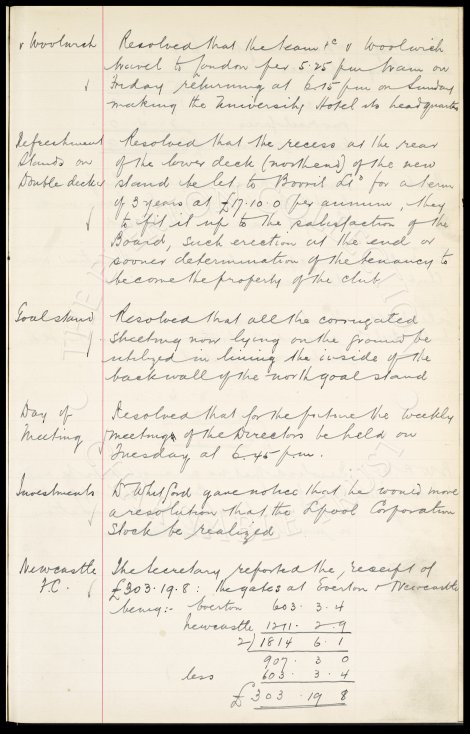 v Woolwich Resolved that the team &c v Woolwich
travel to London per 5.25 pm train on
Friday returning at 6.15 pm on Sunday
making the University Hotel its headquarters
Refreshment Resolved that the recess at the rear
Stands on of the lower deck (north end) of the new
Double decker stand be let to Bovril Ld for a term
of 3 years at £17.10.0 per annum, they
to fit it up to the satisfaction of the
Board, such erection at the end or
sooner determination of the tenancy to
become the property of the club
Goal stand Resolved that all the corrugated
sheeting now lying on the ground be
utilized in lining the inside of the
back wall of the north goal stand
Day of Resolved that for the future the weekly
Meeting meetings of the Directors be held on
Tuesday at 6.45 p.m.
Investments Dr Whitford gave notice that he would move
a resolution that the Lpool Corporation
Stock be realized
Newcastle The Secretary reported the receipt of
F.C. £303.19.8: the gates at Everton & Newcastle
being:- Everton 603.3.4
Newcastle 1211.2.9
2) 1814 6.1
907.3 0
less 603.3.4
£303.19 8